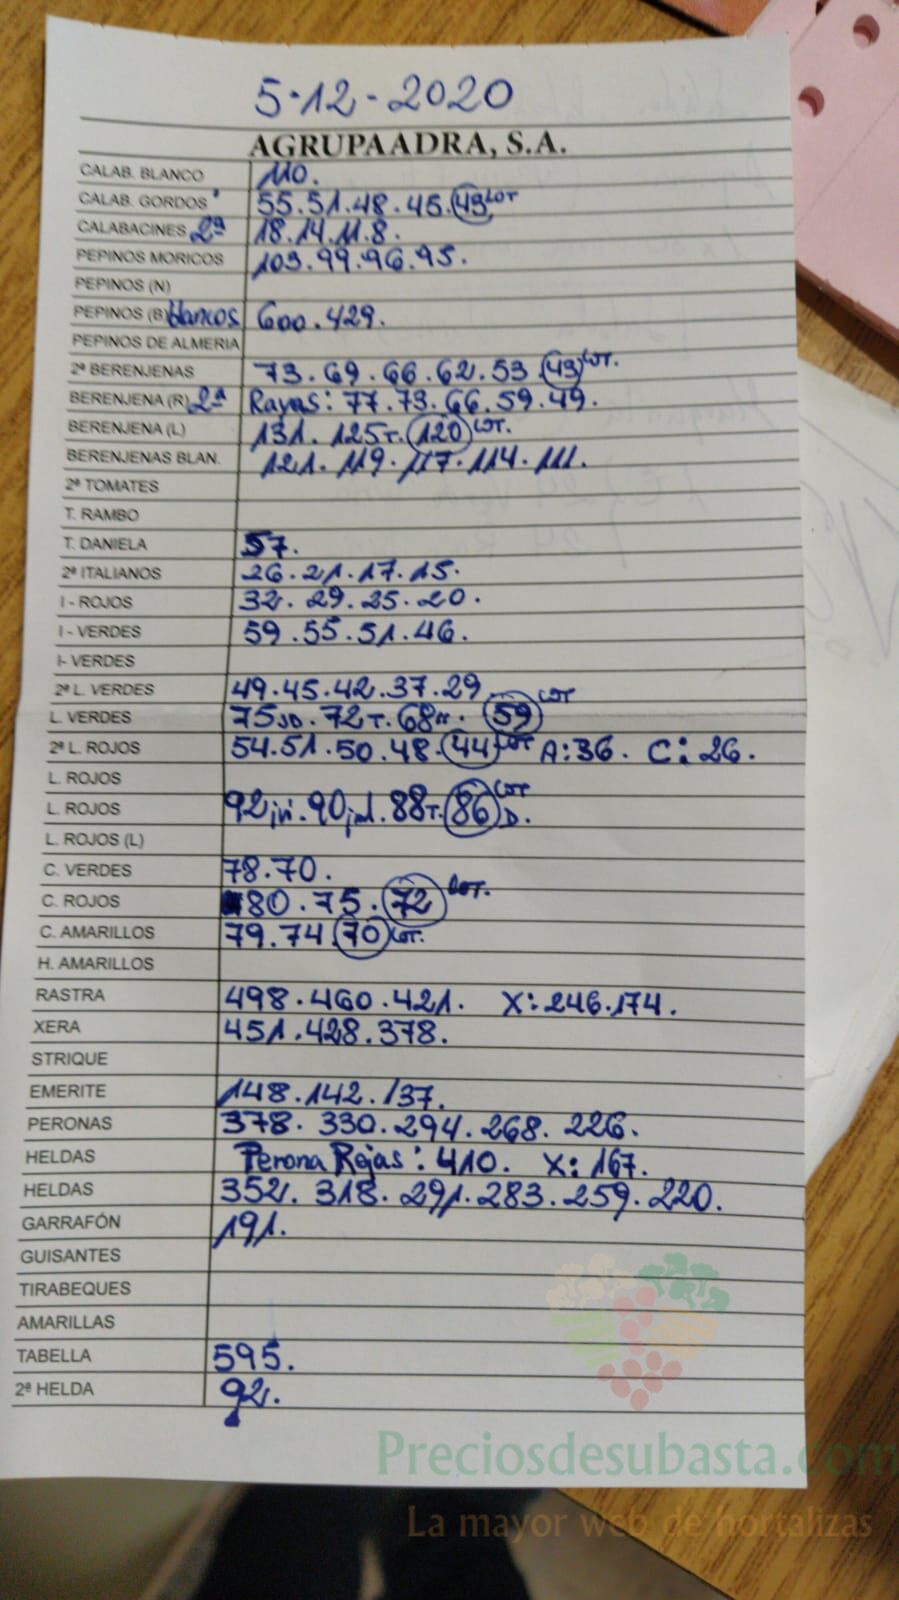 5-12-2020
AGRUPAADRA, S.A.
CALAB. BLANCO 110.
CALAB. GORDOS 55.51.48.45.43 LOT
CALABACINES 2ª 18.14.11.8.
PEPINOS MORICOS 103.99.96.95.
PEPINOS (N)
PEPINOS (B) blancos 600.429.
PEPINOS DE ALMERIA
2ª BERENJENAS 73.69.66.62.53.43 LOT.
BERENJENA (R) 2ª Rayas: 77.73.66.59.49.
BERENJENA (L) 131.125T.120 LOT.
BERENJENAS BLAN. 121.119.117.114.111.
2ª TOMATES
T. RAMBO
T. DANIELA 57.
2ª ITALIANOS 26.21.17.15.
I - ROJOS 32.29.25.20.
I - VERDES 59.55.51.46.
I- VERDES
2ª L. VERDES 49.45.42.37.29
L. VERDES 75JD.72T.68H.59 LOT
2ª L. ROJOS 54.51.50.48.44 LOT A:36. C:26.
L. ROJOS
L. ROJOS 92.90.88T.86 LOT D.
L. ROJOS (L)
C. VERDES 78.70.
C. ROJOS 80.75.72 LOT.
C. AMARILLOS 79.74.70 LOT.
H. AMARILLOS
RASTRA 498.460.421. X:246.174.
XERA 451.428.378.
STRIQUE
EMERITE 148.142.137.
PERONAS 378.330.294.268.226.
HELDAS Perona Rojas: 410. X:167.
HELDAS 352.318.291.283.259.220.
GARRAFÓN 191.
GUISANTES
TIRABEQUES
AMARILLAS
TABELLA 595.
2ª HELDA 92.
Preciosdesubasta.com
La mayor web de hortalizas